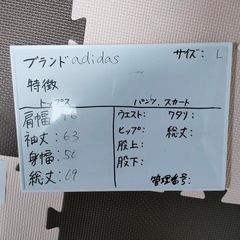 ブランド adidas サイズ: L
特徴
トップス
肩幅: 46
袖丈: 63
身幅: 56
総丈: 69
パンツ、スカート
ウエスト: ワタリ:
ヒップ: 総丈:
股上:
股下:
管理番号: